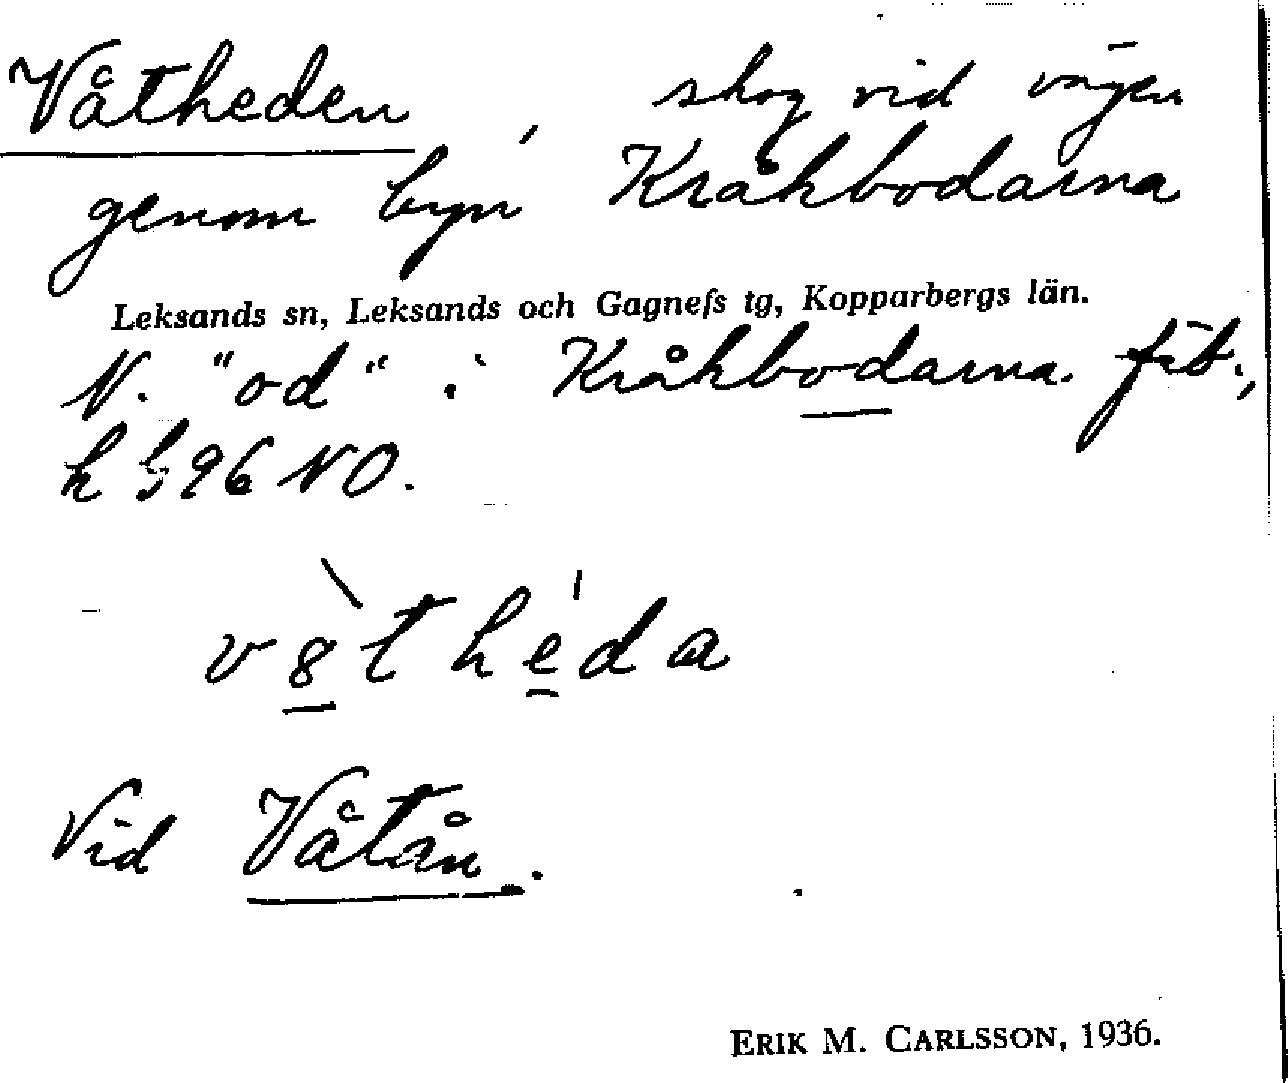 Våtheden, skog vid vägen
genom byn Kråkbodarna
Leksands sn, Leksands och Gagnefs tg, Kopparbergs län.
N. "od" i Kråkbodarna fäb.,
k 96 NO.
v8̲̀t he̲̍da
Vid Våtån.
ERIK M. CARLSSON, 1936.